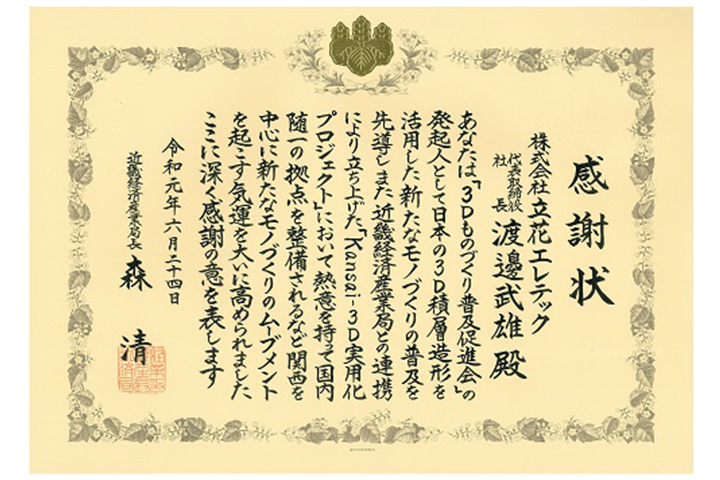 感謝状
株式会社立花エレテック
代表取締役
社長
渡邊武雄殿
あなたは「3Dものづくり普及促進会」の
発起人として日本の3D積層造形を
活用した新たなモノづくりの普及を
先導しまた近畿経済産業局との連携
により立ち上げた「Kansai-3D実用化
プロジェクト」において熱意を持って国内
随一の拠点を整備されるなど関西を
中心に新たなモノづくりのムーブメント
を起こす気運を大いに高められました
ここに深く感謝の意を表します
令和元年六月二十四日
近畿経済産業局長
森清